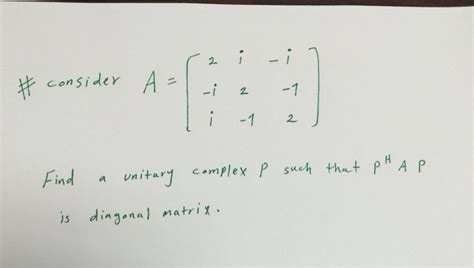 # consider A = [ 2 i -i
-i 2 -1
i -1 2 ]
Find a unitary complex P such that P^H A P
is diagonal matrix.